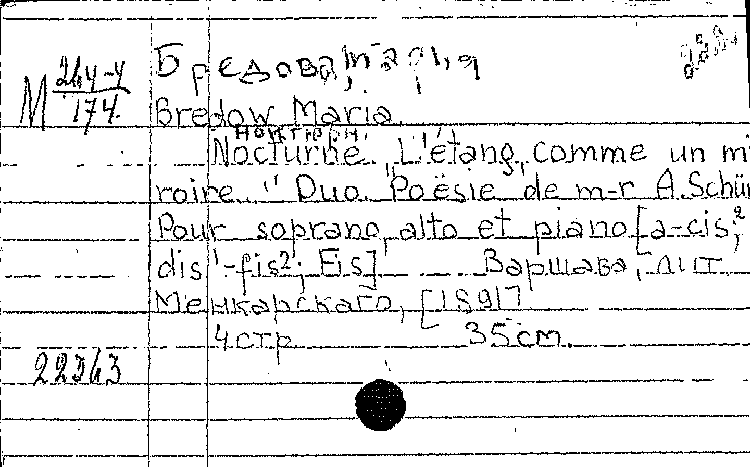 М 244-4/174
Бредова, Мария
Bredow Maria
Ноктюрн.
Nocturne. "L'étang, comme un mi
roire" Duo. Poësie de m-r A. Schü
Pour soprano, alto et piano [a-cis²;
dis'-fis²; Eis] Варшава, лит.
Менкарскаго, [1891]
4 стр 35 cm.
22343